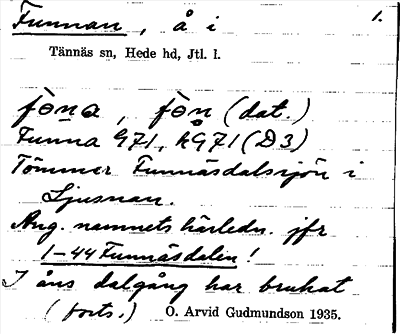 Funnan, å i 1.
Tännäs sn, Hede hd, Jtl. l.
fòna, fòn (dat.)
Funna G71, kG71 (D3)
Tömmer Funnäsdalssjön i
Ljusnan.
Ang. namnets härledn. jfr
1-44 Funnäsdalen!
I åns dalgång har brukat
(forts.) O. Arvid Gudmundson 1935.